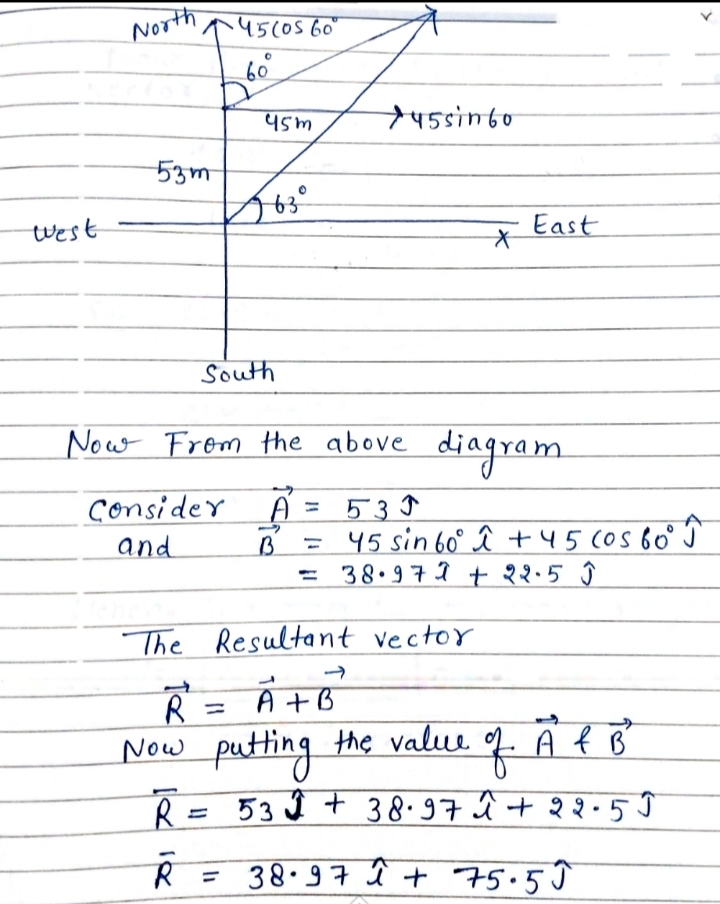 North 45cos60°
60°
45m 45sin60
53m
63°
West East
x
South
Now From the above diagram
Consider A⃗ = 53 ĵ
and B⃗ = 45 sin60° î + 45 cos60° ĵ
= 38.97 î + 22.5 ĵ
The Resultant vector
R⃗ = A⃗ + B⃗
Now putting the value of A⃗ & B⃗
R̄ = 53 ĵ + 38.97 î + 22.5 ĵ
R̄ = 38.97 î + 75.5 ĵ